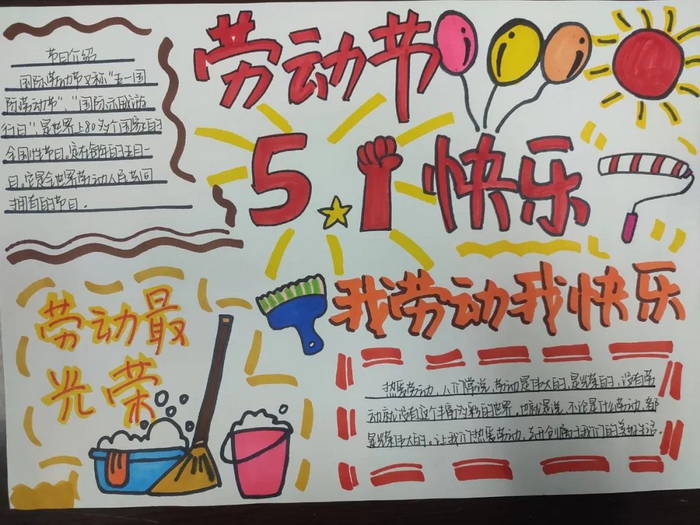 劳动节
5.1快乐
节日介绍
国际劳动节又称"五一国
际劳动节"、"国际示威游
行日",是世界上80多个国家的
全国性节日,定在每年的五月一
日,它是全世界劳动人民共同
拥有的节日。
劳动最
光荣
我劳动我快乐
热爱劳动,人们常说,劳动是伟大的,是光荣的,没有劳
动就没有这个丰富多彩的世界,也就是说,不论是什么劳动,都
是光荣伟大的,让我们热爱劳动,共同创属于我们的美好生活。